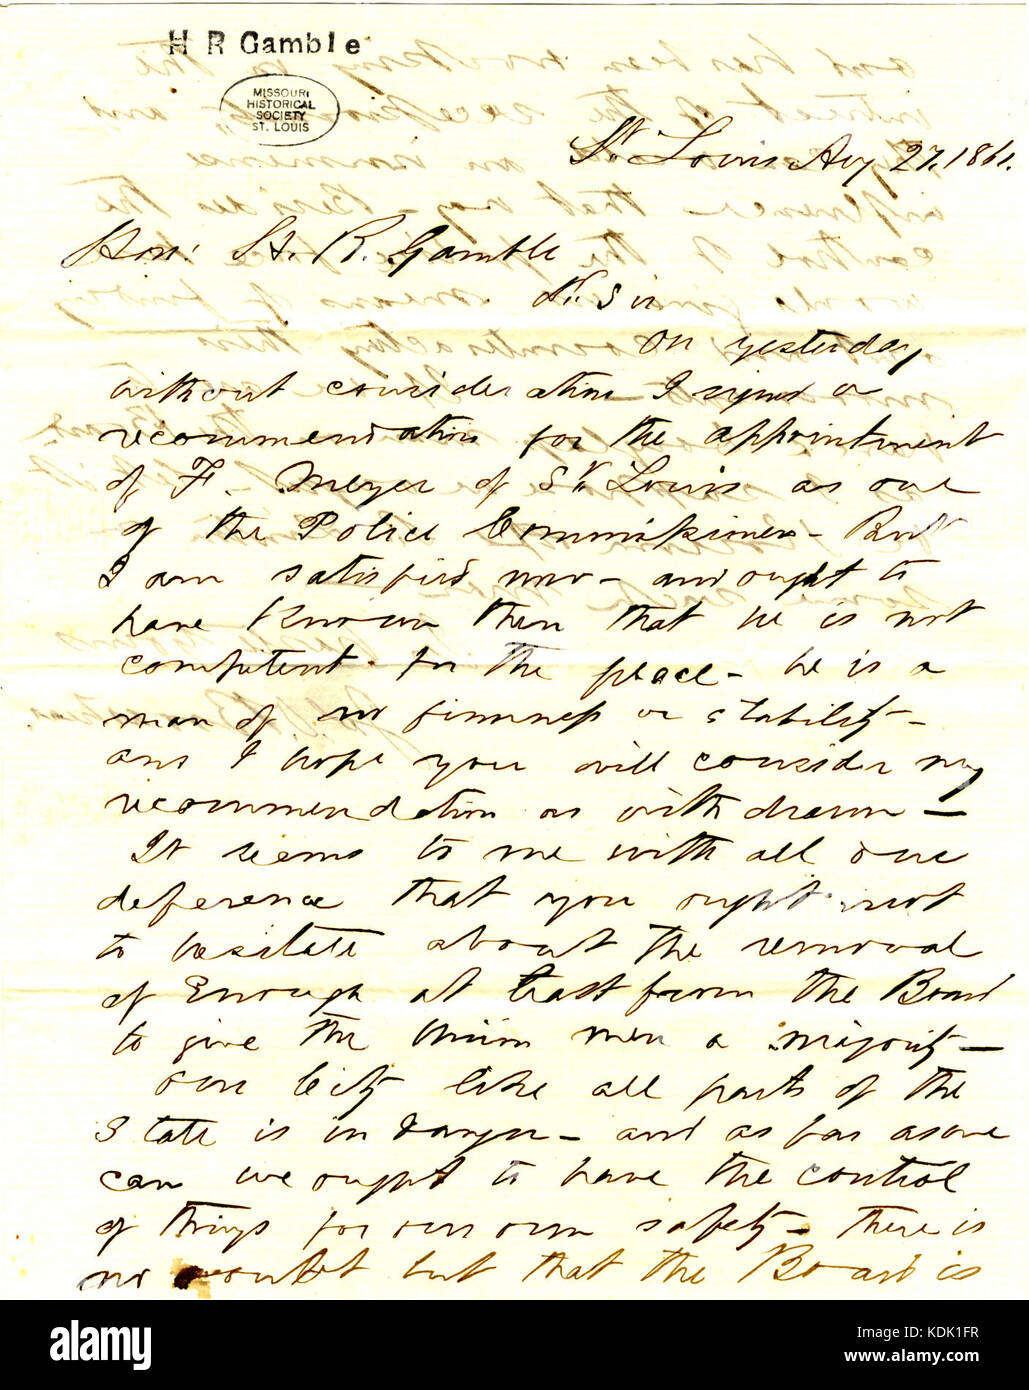 H R Gamble
MISSOURI
HISTORICAL
SOCIETY
ST. LOUIS
St Louis Aug 27. 1861.
Hon: H. R. Gamble
Dr Sir
On yesterday
without consideration I signed a
recommendation for the appointment
of F. Meyer of St Louis as one
of the Police Commissioners - But
I am satisfied now - and ought to
have known then that he is not
competent for the place - he is a
man of no firmness or stability -
and I hope you will consider my
recommendation as withdrawn -
It seems to me with all due
deference that you ought not
to hesitate about the removal
of enough at least from the Board
to give the Union men a majority -
Our City like all parts of the
State is in danger - and as far as one
can we ought to have the control
of things for our own safety - there is
no doubt but that the Board is
alamy
Image ID: KDK1FR
www.alamy.com